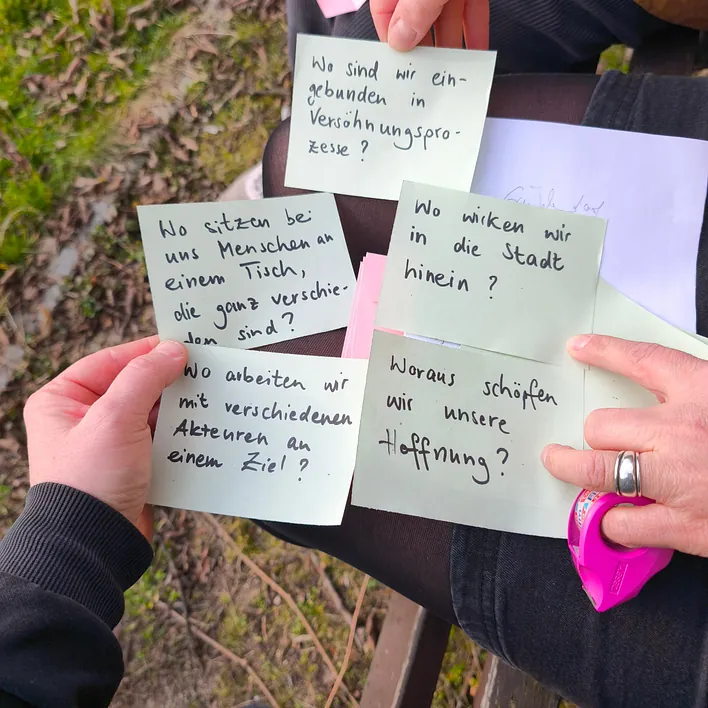 Wo sind wir ein-
gebunden in
Versöhnungspro-
zesse?
Wo sitzen bei
uns Menschen an
einem Tisch,
die ganz verschie-
den sind?
Wo wirken wir
in die Stadt
hinein?
Wo arbeiten wir
mit verschiedenen
Akteuren an
einem Ziel?
Woraus schöpfen
wir unsere
Hoffnung?